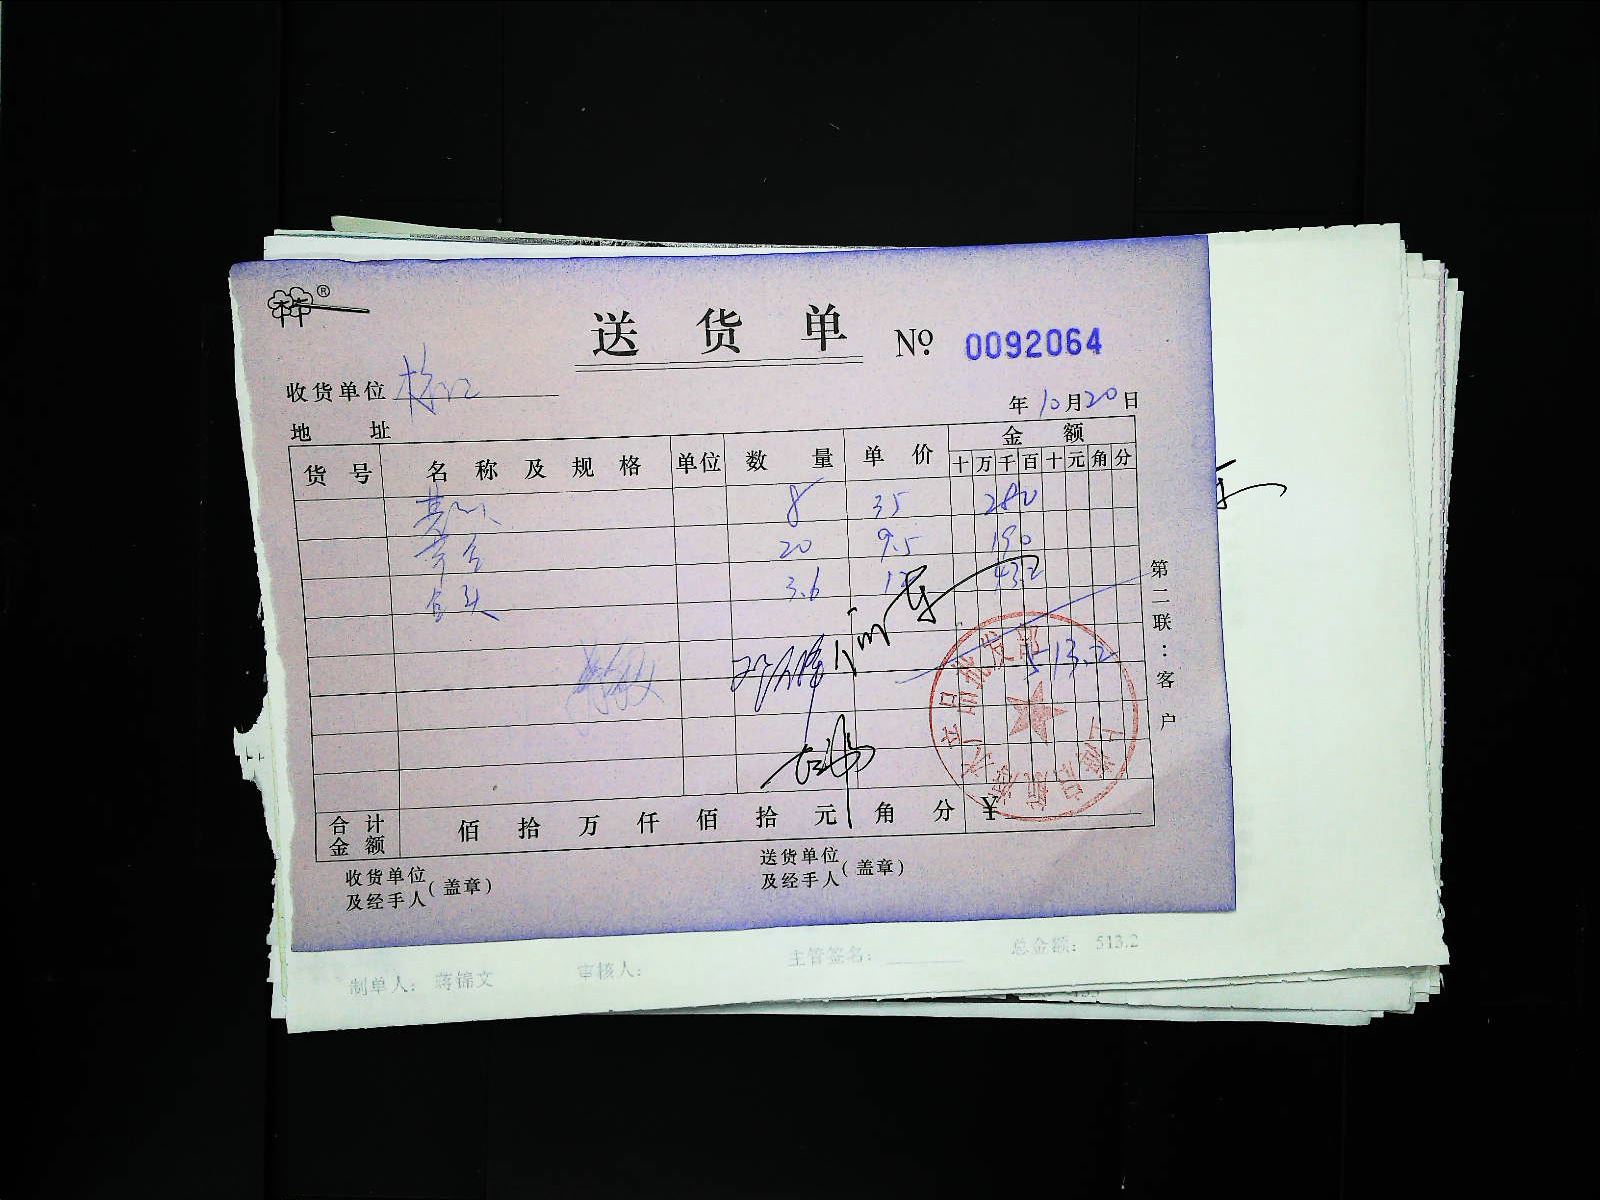 送货单 № 0092064
收货单位
年10月20日
地址
货号 名称及规格 单位 数量 单价 金额
十万千百十元角分
8 35 280
20 9.5 190
3.6 12 43.2
513.2
第二联：客户
合计金额 佰拾万仟佰拾元角分 ¥
收货单位及经手人（盖章） 送货单位及经手人（盖章）
制单人： 蒋锦文 审核人： 主管签名： 总金额： 513.2